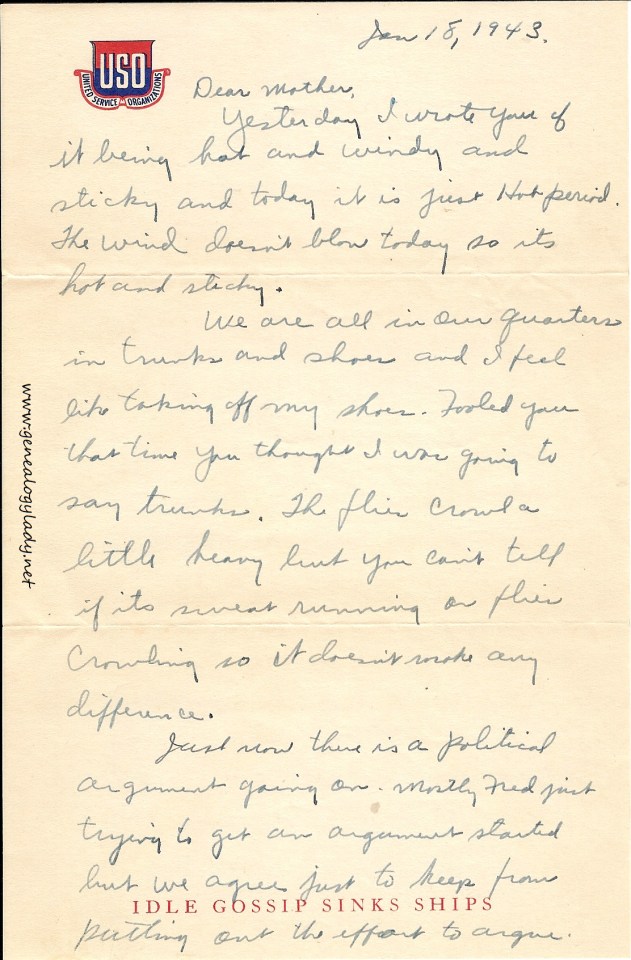 Jan 18, 1943.
USO
UNITED SERVICE ORGANIZATIONS
Dear Mother,
Yesterday I wrote you of
it being hot and windy and
sticky and today it is just Hot period.
The wind doesn't blow today so its
hot and sticky.
We are all in our quarters
in trunks and shoes and I feel
like taking off my shoes. Fooled you
that time you thought I was going to
say trunks. The flies crawl a
little heavy but you can't tell
if its sweat running or flies
crawling so it doesn't make any
difference.
Just now there is a political
argument going on. Mostly Fred just
trying to get an argument started
but we agree just to keep from
IDLE GOSSIP SINKS SHIPS
putting out the effort to argue.
www.genealogylady.net